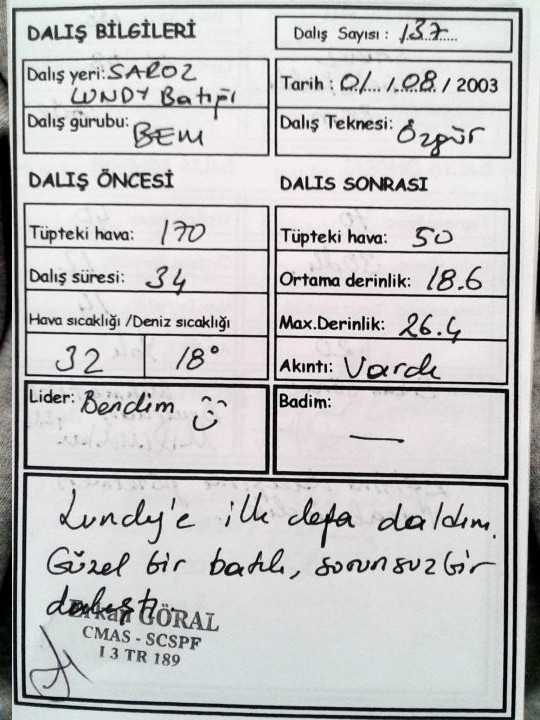 DALIŞ BİLGİLERİ
Dalış Sayısı : 137
Dalış yeri: SAROZ
LUNDY Batığı
Tarih : 01 / 08 / 2003
Dalış gurubu: BEM
Dalış Teknesi: Özgür
DALIŞ ÖNCESİ
DALIS SONRASI
Tüpteki hava: 170
Tüpteki hava: 50
Dalış süresi: 34
Ortama derinlik: 18.6
Hava sıcaklığı /Deniz sıcaklığı
Max.Derinlik: 26.4
32 18°
Akıntı: Vardı
Lider: Bendim
Badim: —
Lundy'e ilk defa daldım.
Güzel bir batık, sorunsuz bir
dalıştı.
GÖRAL
CMAS - SCSPF
I 3 TR 189